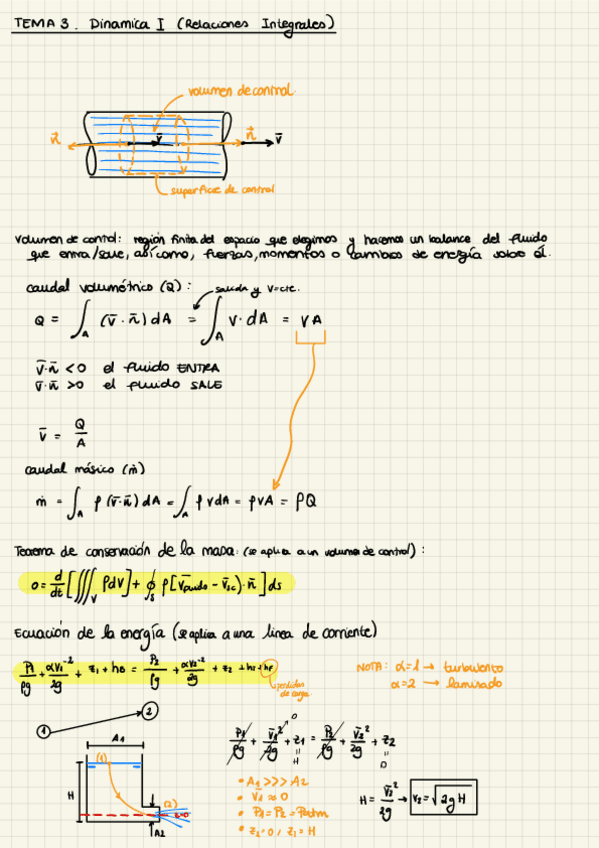 TEMA 3. Dinamica I (Relaciones Integrales)
volumen de control.
n̄ v̄ n̄ v̄
superficie de control
Volumen de control: región finita del espacio que elegimos y hacemos un balance del fluido
que entra/sale, así como, fuerzas, momentos o cambios de energía sobre él.
caudal volumétrico (Q): salida y v=cte.
Q = ∫_A (v̄·n̄) dA = ∫_A v·dA = vA
v̄·n̄ <0 el fluido ENTRA
v̄·n̄ >0 el fluido SALE
v̄ = Q/A
caudal másico (ṁ)
ṁ = ∫_A ρ (v̄·n̄) dA = ∫_A ρ v dA = ρvA = ρQ
Teorema de conservación de la masa: (se aplica a un volumen de control):
0 = d/dt [∭_V ρdV] + ∮_S ρ[v̄fluido - v̄sc)·n̄] ds
Ecuación de la energía (se aplica a una linea de corriente)
P1/ρg + αv1²/2g + z1 + hB = P2/ρg + αv2²/2g + z2 + ht + hf
perdidas de carga
NOTA: α=1 → turbulento
α=2 → laminado
1 2
A1
(1)
H
(2)
z=0
A2
P1/ρg + v̄1²/2g + z1 = P2/ρg + v̄2²/2g + z2
0
H
0
• A1 >>> A2
• v̄1 ≈ 0
• P1 = P2 = Patm
• z2=0 / z1=H
H = v̄2²/2g → v2 = √2gH